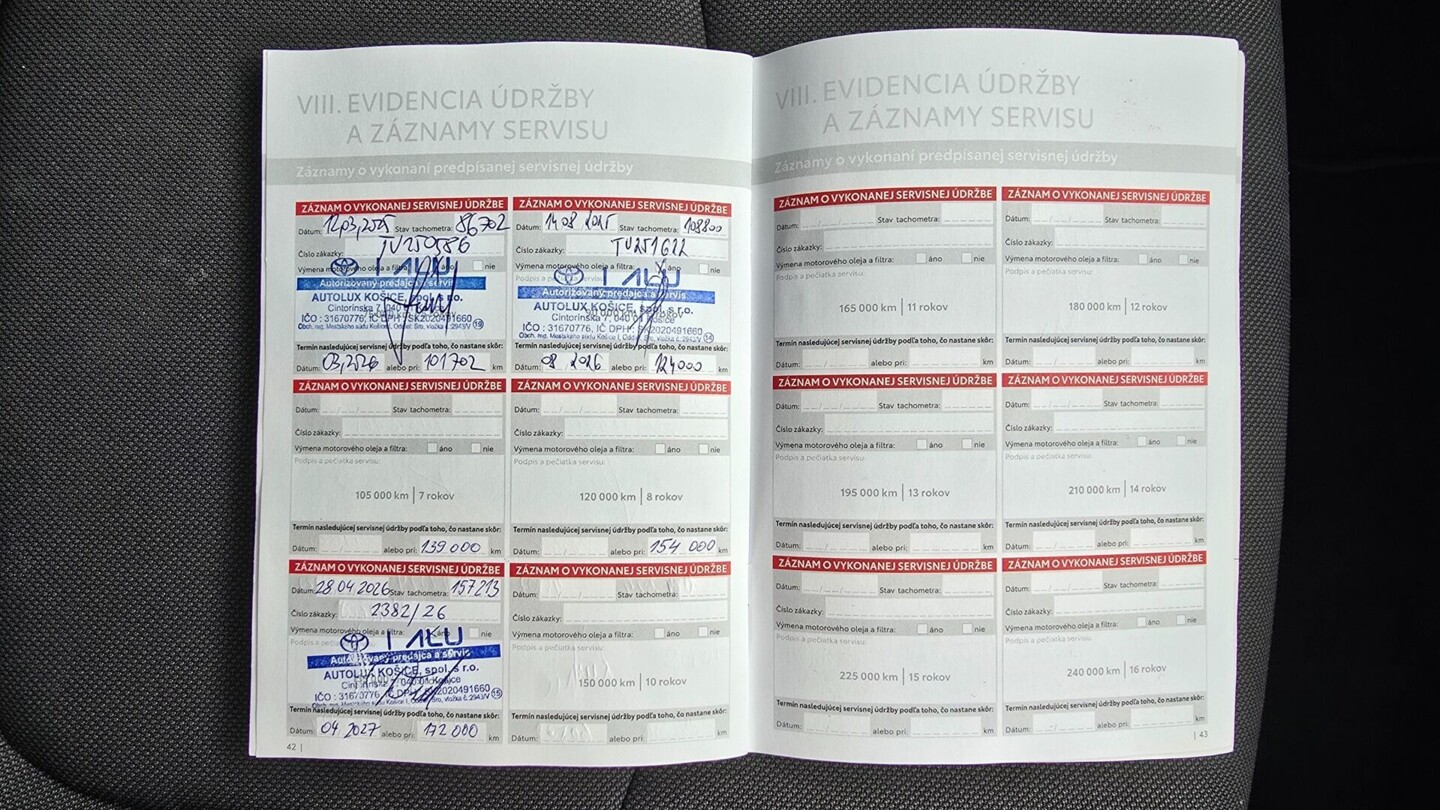 VIII. EVIDENCIA ÚDRŽBY
A ZÁZNAMY SERVISU
Záznamy o vykonaní predpísanej servisnej údržby
ZÁZNAM O VYKONANEJ SERVISNEJ ÚDRŽBE
Dátum: 12.03.2025 Stav tachometra: 86702
Číslo zákazky: TU250586
Výmena motorového oleja a filtra: nie
Autorizovaný predajca a servis
AUTOLUX KOŠICE, spol. s r.o.
Cintorínska 7, 040
IČO : 31670776, IČ DPH : SK2020491660
Obch. reg. Mestského súdu Košice I, Oddiel: Sro, vložka č.:2943/V
Termín nasledujúcej servisnej údržby podľa toho, čo nastane skôr:
Dátum: 03.2026 alebo pri: 101702 km
ZÁZNAM O VYKONANEJ SERVISNEJ ÚDRŽBE
Dátum: 14 08 2025 Stav tachometra: 108800
Číslo zákazky: TU251622
Výmena motorového oleja a filtra: áno nie
Autorizovaný predajca a servis
AUTOLUX KOŠICE, spol. s r.o.
Cintorínska 7, 040 01 Košice
IČO : 31670776, IČ DPH : SK2020491660
Obch. reg. Mestského súdu Košice I, Oddiel: Sro, vložka č.:2943/V
Termín nasledujúcej servisnej údržby podľa toho, čo nastane skôr:
Dátum: 08 2026 alebo pri: 124000 km
ZÁZNAM O VYKONANEJ SERVISNEJ ÚDRŽBE
Dátum: Stav tachometra:
Číslo zákazky:
Výmena motorového oleja a filtra: áno nie
Podpis a pečiatka servisu:
105 000 km | 7 rokov
Termín nasledujúcej servisnej údržby podľa toho, čo nastane skôr:
Dátum: alebo pri: 139 000 km
ZÁZNAM O VYKONANEJ SERVISNEJ ÚDRŽBE
Dátum: Stav tachometra:
Číslo zákazky:
Výmena motorového oleja a filtra: áno nie
Podpis a pečiatka servisu:
120 000 km | 8 rokov
Termín nasledujúcej servisnej údržby podľa toho, čo nastane skôr:
Dátum: alebo pri: 154 000 km
ZÁZNAM O VYKONANEJ SERVISNEJ ÚDRŽBE
Dátum: 28.04.2026 Stav tachometra: 157213
Číslo zákazky: 2382/26
Výmena motorového oleja a filtra: áno nie
Autorizovaný predajca a servis
AUTOLUX KOŠICE, spol. s r.o.
Cintorínska 7, 040 01 Košice
IČO : 31670776, IČ DPH : SK2020491660
Obch. reg. Mestského súdu Košice I, Oddiel: Sro, vložka č.:2943/V
Termín nasledujúcej servisnej údržby podľa toho, čo nastane skôr:
Dátum: 04 2027 alebo pri: 172 000 km
ZÁZNAM O VYKONANEJ SERVISNEJ ÚDRŽBE
Dátum: Stav tachometra:
Číslo zákazky:
Výmena motorového oleja a filtra: áno nie
Podpis a pečiatka servisu:
150 000 km | 10 rokov
Termín nasledujúcej servisnej údržby podľa toho, čo nastane skôr:
Dátum: alebo pri: km
42 |
VIII. EVIDENCIA ÚDRŽBY
A ZÁZNAMY SERVISU
Záznamy o vykonaní predpísanej servisnej údržby
ZÁZNAM O VYKONANEJ SERVISNEJ ÚDRŽBE
Dátum: Stav tachometra:
Číslo zákazky:
Výmena motorového oleja a filtra: áno nie
Podpis a pečiatka servisu:
165 000 km | 11 rokov
Termín nasledujúcej servisnej údržby podľa toho, čo nastane skôr:
Dátum: alebo pri: km
ZÁZNAM O VYKONANEJ SERVISNEJ ÚDRŽBE
Dátum: Stav tachometra:
Číslo zákazky:
Výmena motorového oleja a filtra: áno nie
Podpis a pečiatka servisu:
180 000 km | 12 rokov
Termín nasledujúcej servisnej údržby podľa toho, čo nastane skôr:
Dátum: alebo pri: km
ZÁZNAM O VYKONANEJ SERVISNEJ ÚDRŽBE
Dátum: Stav tachometra:
Číslo zákazky:
Výmena motorového oleja a filtra: áno nie
Podpis a pečiatka servisu:
195 000 km | 13 rokov
Termín nasledujúcej servisnej údržby podľa toho, čo nastane skôr:
Dátum: alebo pri: km
ZÁZNAM O VYKONANEJ SERVISNEJ ÚDRŽBE
Dátum: Stav tachometra:
Číslo zákazky:
Výmena motorového oleja a filtra: áno nie
Podpis a pečiatka servisu:
210 000 km | 14 rokov
Termín nasledujúcej servisnej údržby podľa toho, čo nastane skôr:
Dátum: alebo pri: km
ZÁZNAM O VYKONANEJ SERVISNEJ ÚDRŽBE
Dátum: Stav tachometra:
Číslo zákazky:
Výmena motorového oleja a filtra: áno nie
Podpis a pečiatka servisu:
225 000 km | 15 rokov
Termín nasledujúcej servisnej údržby podľa toho, čo nastane skôr:
Dátum: alebo pri: km
ZÁZNAM O VYKONANEJ SERVISNEJ ÚDRŽBE
Dátum: Stav tachometra:
Číslo zákazky:
Výmena motorového oleja a filtra: áno nie
Podpis a pečiatka servisu:
240 000 km | 16 rokov
Termín nasledujúcej servisnej údržby podľa toho, čo nastane skôr:
Dátum: alebo pri: km
| 43